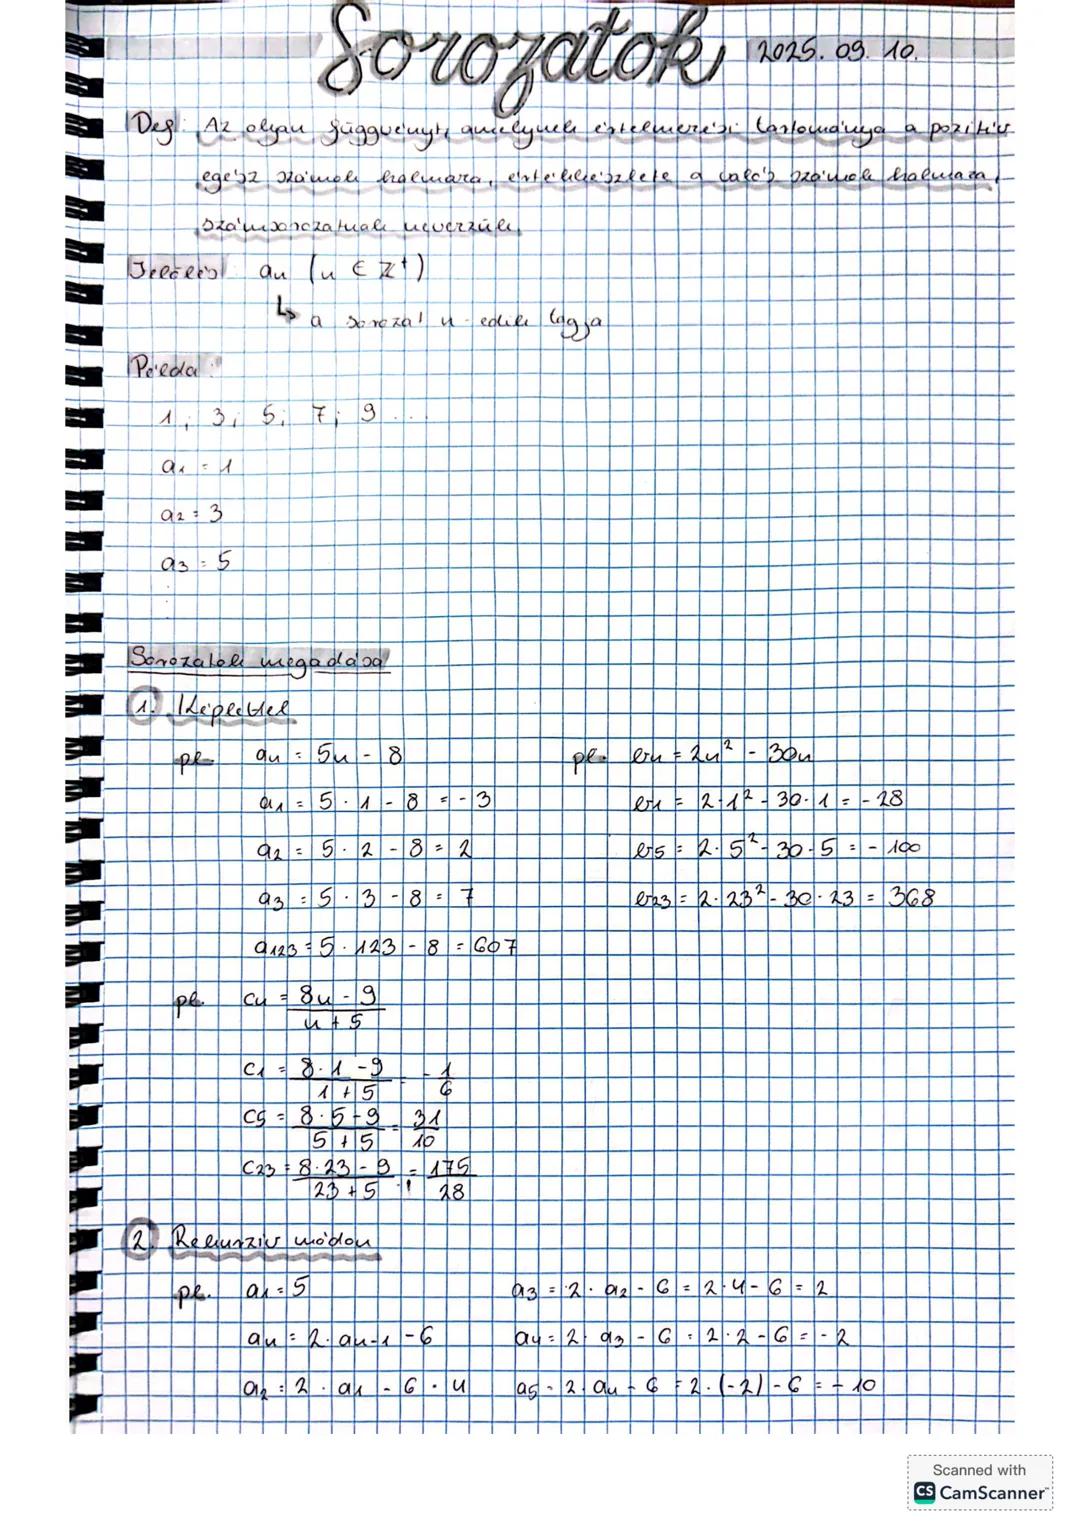 Sorozatok 2025. 09. 10.
Def: Az olyan függvényt, amelynek értelmezési tartománya a pozitív
egész számok halmaza, értékkészlete a valós számok halmaza,
számsorozatnak nevezzük.
Jelölés: an (n ∈ Z⁺)
↳ a sorozat n-edik tagja
Példa:
1; 3; 5; 7; 9 ...
a₁ = 1
a₂ = 3
a₃ = 5
Sorozatok megadása
1. Képlettel
pl. an = 5n - 8 pl. bn = 2n² - 30n
a₁ = 5 · 1 - 8 = - 3 b₁ = 2·1² - 30·1 = - 28
a₂ = 5 · 2 - 8 = 2 b₅ = 2·5² - 30·5 = - 100
a₃ = 5 · 3 - 8 = 7 b₂₃ = 2·23² - 30·23 = 368
a₁₂₃ = 5 · 123 - 8 = 607
pl. cn = (8n - 9)/(n + 5)
c₁ = (8·1 - 9)/(1 + 5) = - 1/6
c₅ = (8·5 - 9)/(5 + 5) = 31/10
c₂₃ = (8·23 - 9)/(23 + 5) = 175/28
2. Rekurzív módon
pl. a₁ = 5 a₃ = 2 · a₂ - 6 = 2·4 - 6 = 2
an = 2 · an-1 - 6 a₄ = 2 · a₃ - 6 = 2·2 - 6 = - 2
a₂ = 2 · a₁ - 6 = 4 a₅ = 2 · a₄ - 6 = 2·(-2) - 6 = - 10
Scanned with
CS CamScanner